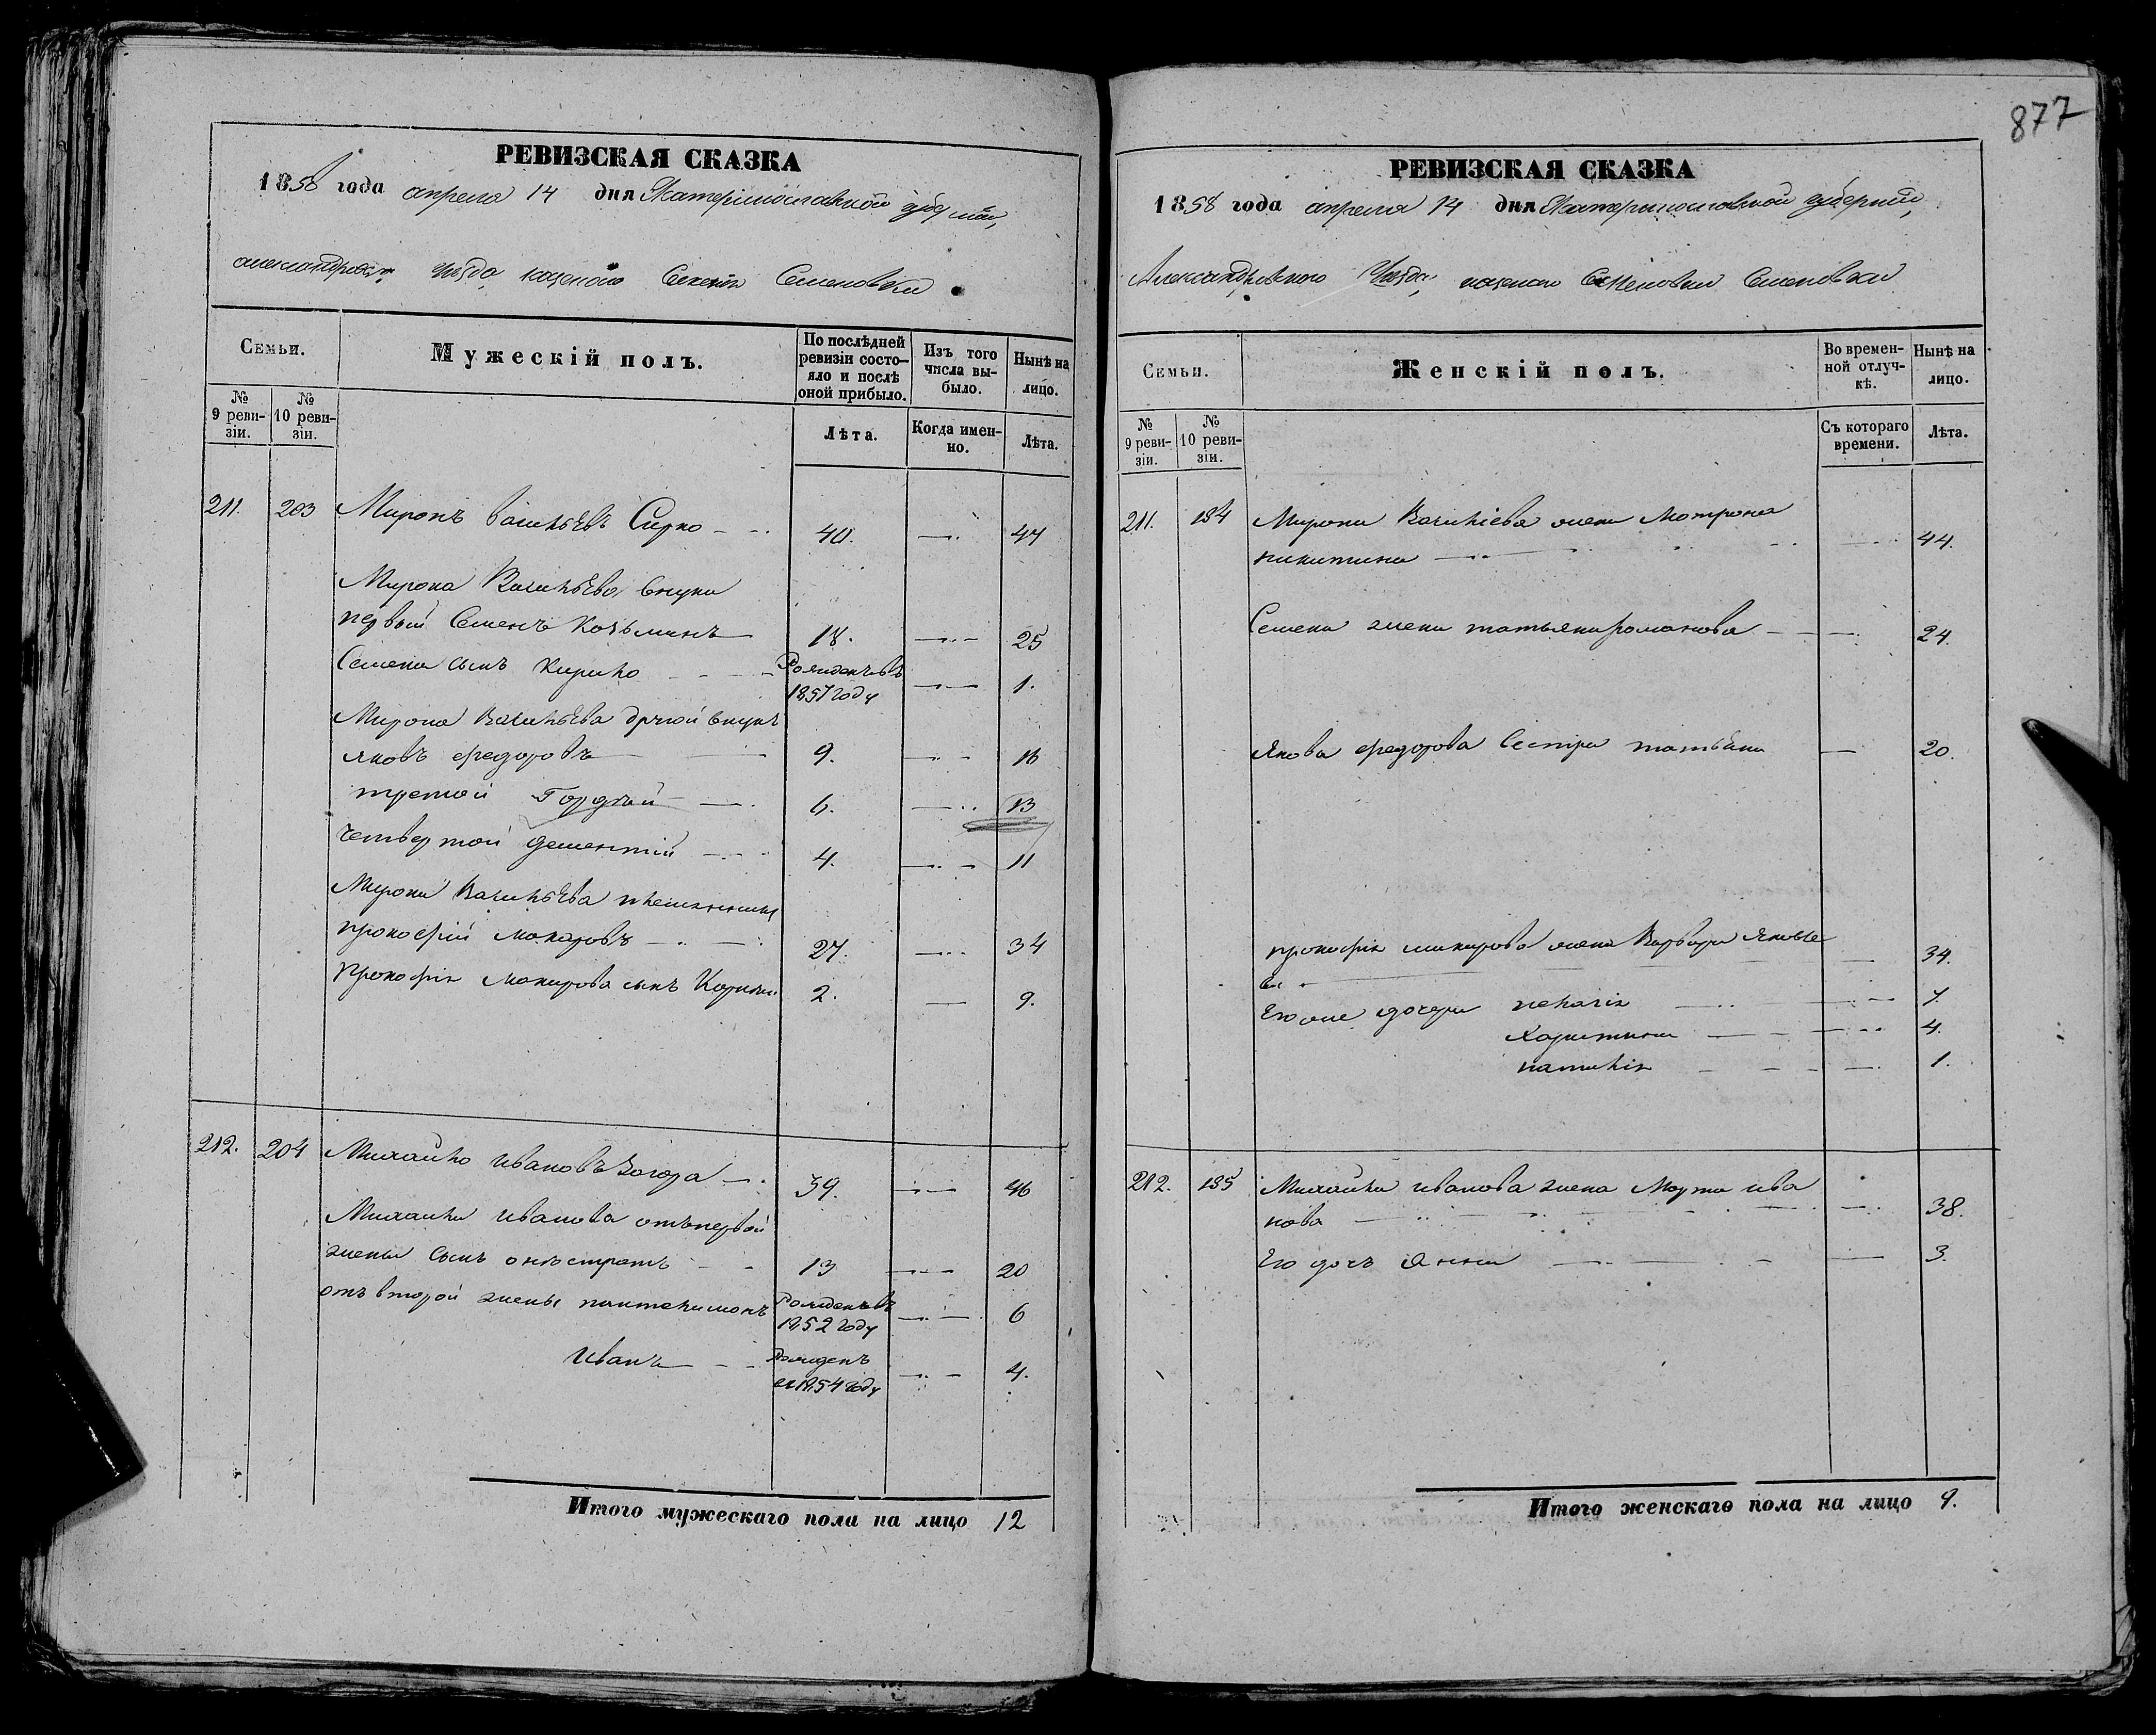 877
РЕВИЗСКАЯ СКАЗКА
1858 года апреля 14 дня Екатеринославской губернии,
александровск: уезда казеного Селенія Семеновки
Семьи.
Мужескій полъ.
По послѣдней ревизіи состо-
яло и послѣ
оной прибыло.
Изъ того
числа вы-
было.
Нынѣ на
лицо.
№
9 реви-
зіи.
№
10 реви-
зіи.
Лѣта.
Когда имен-
но.
Лѣта.
211. 203 Миронъ Васильевъ Сирко 40. 47
Мирона Васильева внуки
первый Семенъ Козьминъ 18. 25
Семена сынъ Кирило Рожденъ въ 1857 году 1.
Мирона Васильева другой внукъ
яковъ федоровъ 9. 16
третой Гордѣй 6. 13
четвертой дементий 4. 11
Мирона Васильева племянникъ
прокофий макаровъ 27. 34
Прокофія макарова сынъ 2. 9.
212. 204 Михайло ивановъ 39. 46
Михайлы иванова отъ первой
жены сынъ 13 20
отъ второй жены пантелимонъ Рожденъ въ 1852 году 6
иванъ Рожденъ въ 1854 году 4.
Итого мужескаго пола на лицо 12
РЕВИЗСКАЯ СКАЗКА
1858 года апреля 14 дня Екатеринославской губернии,
Александровского Уезда, казеного Семеновки
Семьи.
Женскій полъ.
Во времен-
ной отлуч-
кѣ.
Нынѣ на
лицо.
№
9 реви-
зіи.
№
10 реви-
зіи.
Съ котораго
времени.
Лѣта.
211. 184 Мирона Василіева жена Мотрона
никитина 44.
Семена жена татьяна романова 24.
Якова федорова Сестра татьяна 20.
прокофія макарова жена Варвара Яковле
ва 34.
Его же дочери пелагія 7.
Харитина 4.
наталія 1.
212. 185 Михайлы иванова жена Марта ива
нова 38.
Его дочь Анна 3.
Итого женскаго пола на лицо 9.